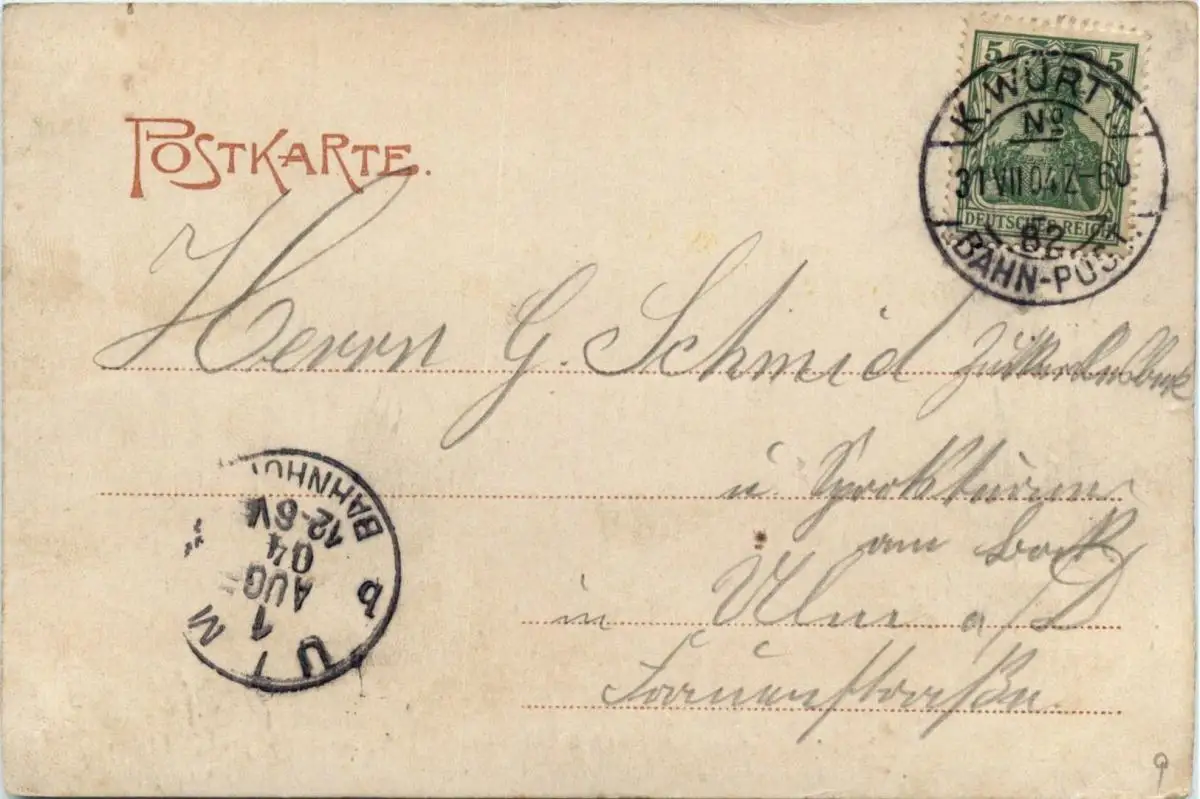 POSTKARTE.
5 5
DEUTSCHES REICH
K. WÜRTT.
No
31 VII 04 Z-60
82
BAHN-POST.
Herrn G. Schmid
u.
am Bock
in Ulm a/D
Frauenstraße.
ULM
b
1
AUG
04
12-6V
BAHNHOF
9